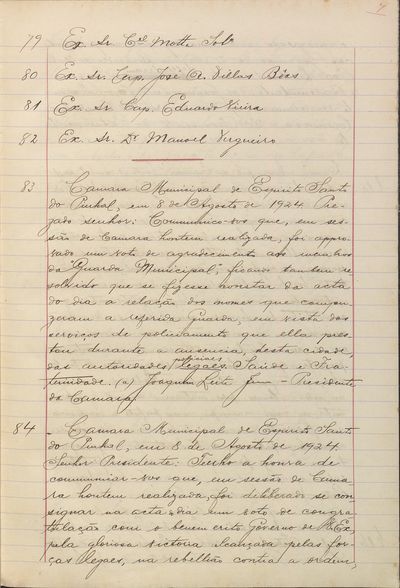 7
79 Ex. Sr. Cel Motta Sobº
80 Ex. Sr. Cap. José A. Villas Bôas
81 Ex. Sr. Cap. Eduardo Vieira
82 Ex. Sr. Dr Manoel Vergueiro
83 Camara Municipal de Espirito Santo
do Pinhal, em 8 de Agosto de 1924. Pre-
zado senhor: Communico-vos que, em ses-
são de Camara hontem realizada, foi appro-
vado um voto de agradecimento aos membros
da "Guarda Municipal", ficando tambem re-
solvido que se fizesse constar da acta
do dia a relação dos nomes que compu-
zeram a referida Guarda, em vista dos
serviços de policiamento que ella pres-
tou durante a ausencia, desta cidade,
das autoridades policiaes legaes. Saúde e Fra-
ternidade. (a) Joaquim Leite – Presidente
da Camara.
84 – Camara Municipal de Espirito Santo
do Pinhal, em 8 de Agosto de 1924.
Senhor Presidente: Tenho a honra de
communicar-vos que, em sessão de Cama-
ra hontem realizada, foi deliberado se con-
signar na acta do dia um voto de congra-
tulação com o benemerito Governo de V. Ex.
pela gloriosa victoria alcançada pelas for-
ças legaes, na rebellião contra a ordem,